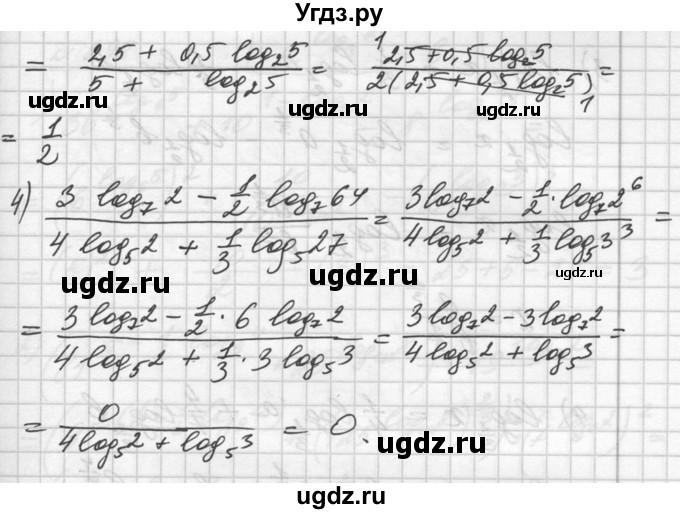 Угдз.ру
= (2,5 + 0,5 log₂5)/(5 + log₂5) = (2,5 + 0,5 log₂5)¹/(2(2,5 + 0,5 log₂5)₁) =
ugdz.ru ugdz.ru ugdz.ru
= 1/2
4) (3 log₇2 − 1/2 log₇64)/(4 log₅2 + 1/3 log₅27) = (3log₇2 − 1/2 · log₇2⁶)/(4log₅2 + 1/3 log₅3³) =
ugdz.ru ugdz.ru ugdz.ru
= (3log₇2 − 1/2 · 6 log₇2)/(4 log₅2 + 1/3 · 3 log₅3) = (3log₇2 − 3log₇2)/(4log₅2 + log₅3) =
ugdz.ru ugdz.ru
= 0/(4log₅2 + log₅3) = 0.
ugdz.ru ugdz.ru
ugdz.ru